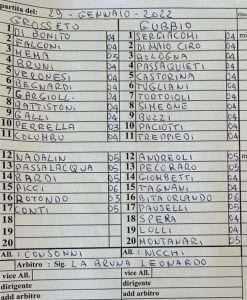 partita del: 29 - GENNAIO - 2022
GROSSETO GUBBIO
1 DI BONITO 04 1 SERGIACOMI 04
2 FALCONI 04 2 DI MAIO CIRO 04
3 HEMA 05 3 BOLOGNA 04
4 BRUNI 04 4 PASSAQUIETI 04
5 VERONESI 04 5 CASTORINA 04
6 BEGNARDI 04 6 FOGLIANI 04
7 04 7 TORTOIOLI 04
8 BATTISTONI 04 8 SIMEONE 04
9 GALLI 04 9 BUZZI 04
10 PERRELLA 03 10 PACIOTTI 04
11 COLUMBU 04 11 TREPPIEDI 04
12 NADALIN 05 12 ANDREOLI 05
13 PASSALACQUA 05 13 PECORARO 05
14 BARDI 05 14 GIOMBETTI 04
15 PICCI 06 15 TAGNANI 04
16 ROTONDO 03 16 BITA ORLANDO 06
17 CONTI 05 17 PAUSELLI 05
18 18 SPERA 04
19 19 LOLLI 04
20 20 MONTANARI 05
All. : CONSONNI All. : NICCHI
Arbitro : Sig. LA BRUNA LEONARDO
vice All. vice All.
dirigente dirigente
add arbitro add arbitro